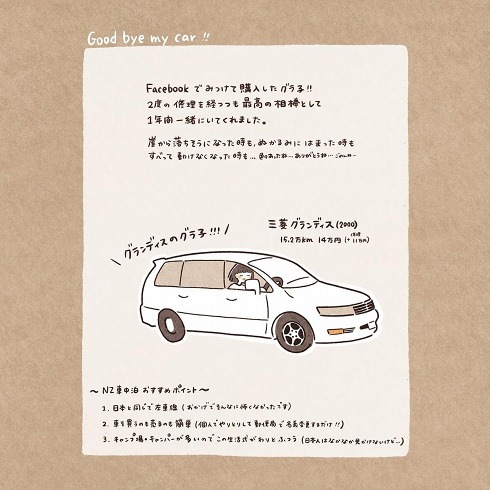 Good bye my car !!
Facebook でみつけて購入したグラ子!!
2度の修理を経つつも最高の相棒として
1年間一緒にいてくれました。
崖から落ちそうになった時も、ぬかるみにはまった時も
すべって動けなくなった時も...
ありがとうね...
三菱グランディス(2000)
15.2万km 14万円
\ グランディスのグラ子!!! /
〜 NZ車中泊 おすすめポイント 〜
1. 日本と同じで左車線 (おかげでそんなに怖くなかったです)
2. 車を買うのも売るのも簡単 (個人でやりとりして郵便局で名義変更するだけ!!)
3. キャンプ場・キャンパーが多いのでこの生活式がわりとふつう (日本人はなかなか見かけないけど...)